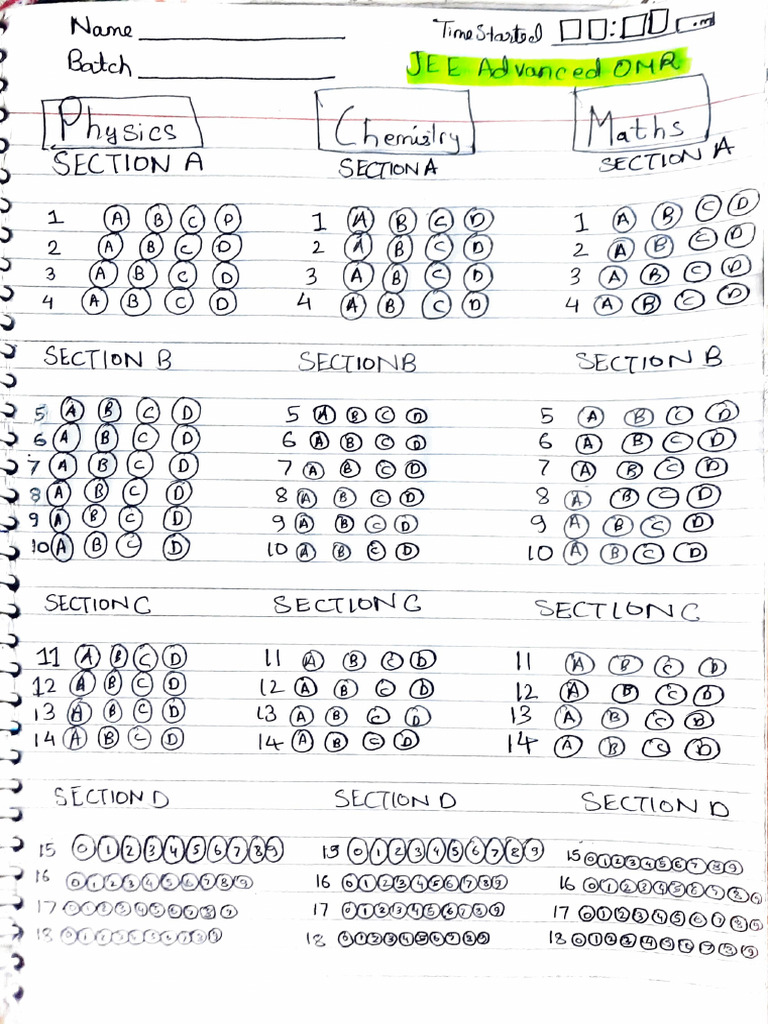 Name __________ Time Started : .m
Batch __________ JEE Advanced OMR
Physics Chemistry Maths
SECTION A SECTION A SECTION A
1 A B C D 1 A B C D 1 A B C D
2 A B C D 2 A B C D 2 A B C D
3 A B C D 3 A B C D 3 A B C D
4 A B C D 4 A B C D 4 A B C D
SECTION B SECTION B SECTION B
5 A B C D 5 A B C D 5 A B C D
6 A B C D 6 A B C D 6 A B C D
7 A B C D 7 A B C D 7 A B C D
8 A B C D 8 A B C D 8 A B C D
9 A B C D 9 A B C D 9 A B C D
10 A B C D 10 A B C D 10 A B C D
SECTION C SECTION C SECTION C
11 A B C D 11 A B C D 11 A B C D
12 A B C D 12 A B C D 12 A B C D
13 A B C D 13 A B C D 13 A B C D
14 A B C D 14 A B C D 14 A B C D
SECTION D SECTION D SECTION D
15 0 1 2 3 4 5 6 7 8 9 15 0 1 2 3 4 5 6 7 8 9 15 0 1 2 3 4 5 6 7 8 9
16 0 1 2 3 4 5 6 7 8 9 16 0 1 2 3 4 5 6 7 8 9 16 0 1 2 3 4 5 6 7 8 9
17 0 1 2 3 4 5 6 7 8 9 17 0 1 2 3 4 5 6 7 8 9 17 0 1 2 3 4 5 6 7 8 9
18 0 1 2 3 4 5 6 7 8 9 18 0 1 2 3 4 5 6 7 8 9 18 0 1 2 3 4 5 6 7 8 9